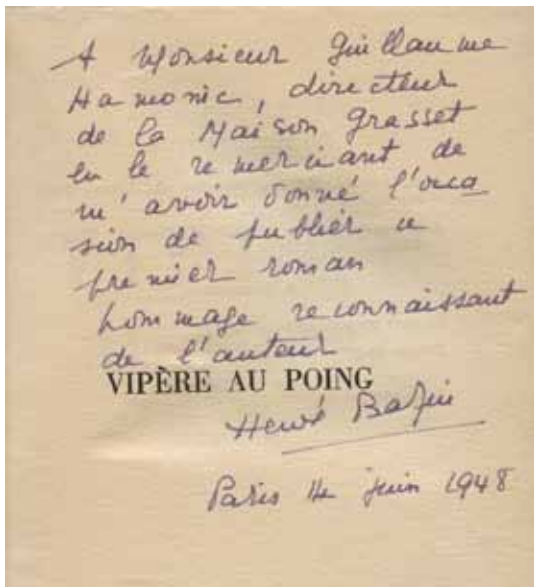 A Monsieur Guillaume
Hamonic, directeur
de la Maison Grasset
en le remerciant de
m'avoir donné l'occa
sion de publier ce
premier roman
hommage reconnaissant
de l'auteur
VIPÈRE AU POING
Hervé Bazin
Paris juin 1948